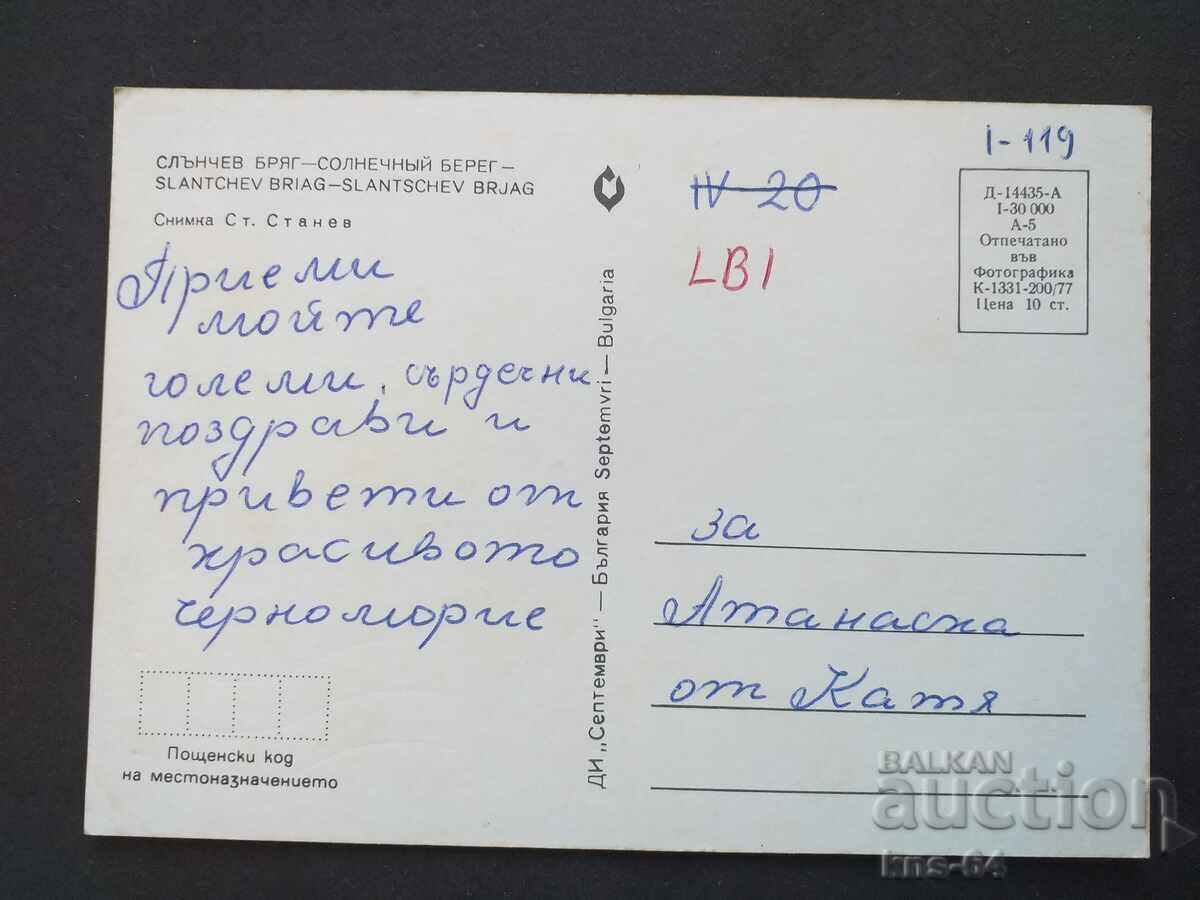 СЛЪНЧЕВ БРЯГ—СОЛНЕЧНЫЙ БЕРЕГ—
SLANTCHEV BRIAG—SLANTSCHEV BRJAG
Снимка Ст. Станев
Приеми
мойте
големи, сърдечни
поздрави и
привети от
красивото
черноморие
Пощенски код
на местоназначението
ДИ „Септември" — България Septemvri — Bulgaria
I-119
IV 20
LB1
Д-14435-А
I-30 000
А-5
Отпечатано
във
Фотографика
К-1331-200/77
Цена 10 ст.
за
Атанаска
от Катя
BALKAN
auction
kns-64